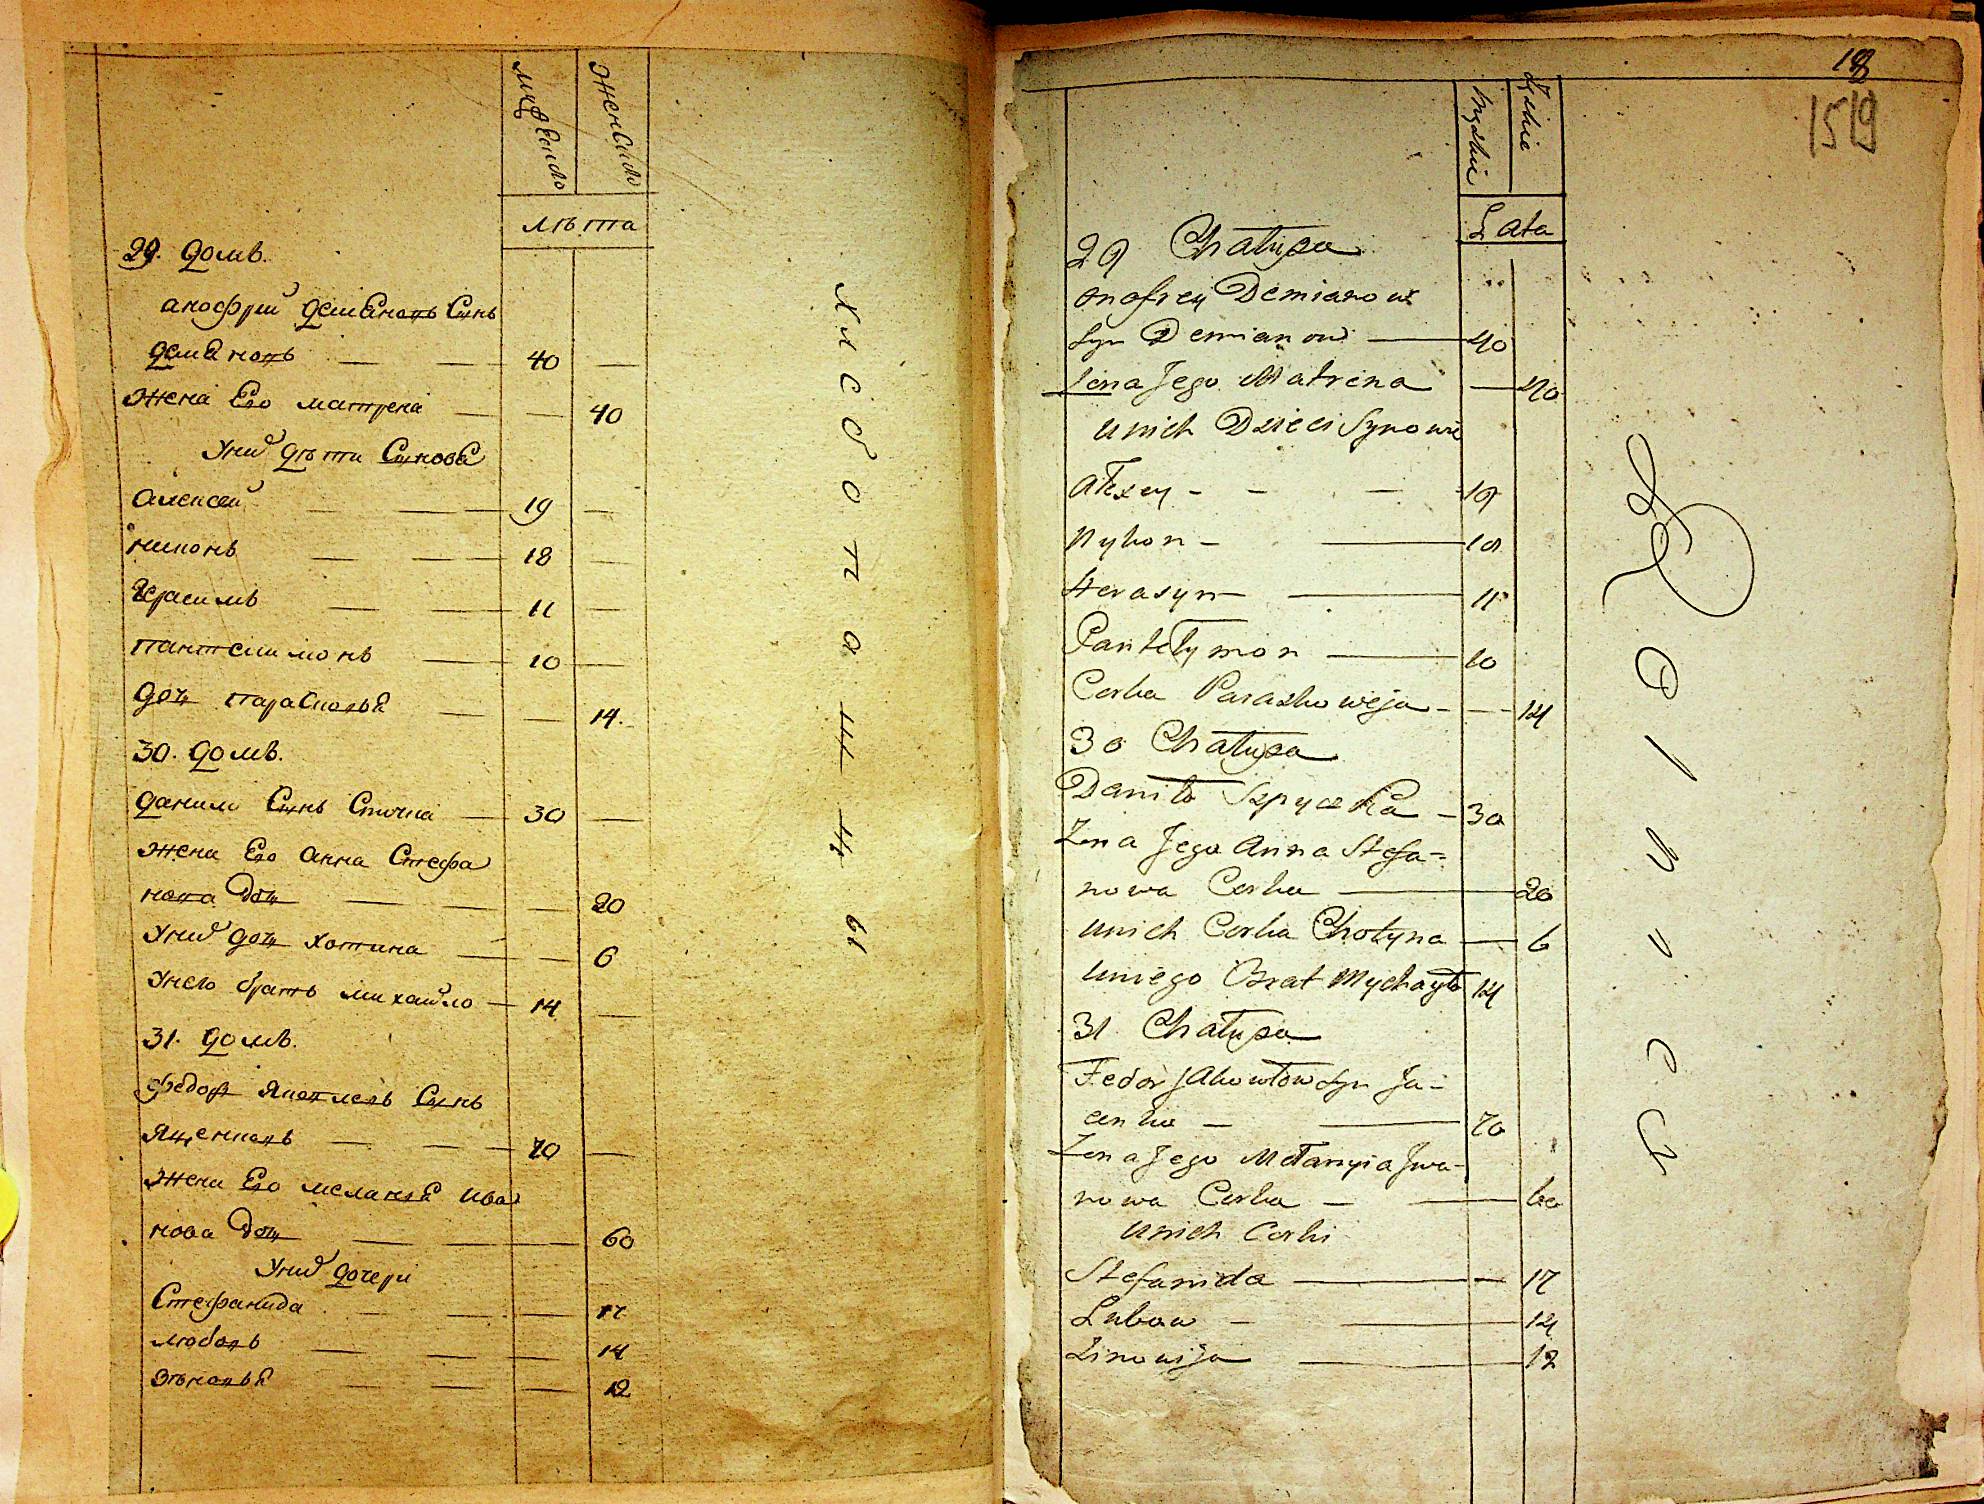 мужеско
женско
лѣта
29. домъ.
анофрий деменовъ Сынъ
демановъ — — 40 —
жена Его матрена — — 40
У них дѣти Сыновя
алексей — — 19 —
никонъ — — 18 —
Герасимъ — — 11 —
пантелимонъ — 10 —
дочь парасковья — — 14.
30. домъ.
данило Сынъ — 30 —
жена Его анна Стефа
нова дочь — — — 20
У них дочь хотина — — 6
У него братъ михайло — 14 —
31. домъ.
федор яковлевъ Сынъ
ященковъ — — 70 —
жена Его меланья ива
нова дочь — — — 60
У них дочери
Стефанида — — — 17
любовь — — — 14
зѣновья — — — 12
18
1519
Męzkie
Żęskie
Lata
29 Chałupa
Onofrey Demianow
Syn Demianow — 40
Żona Jego Matrena — 40
U nich Dzieci Synowie
Alexey - - — 19
Nykon - — 18
Herasym — 11
Pantełymon — 10
Corka Paraskoweja - — 14
30 Chałupa
Daniło Szpyczka — 30
Żona Jego Anna Stefa-
nowa Corka — 20
U nich Corka Chotyna — 6
U niego Brat Mychayło 14
31 Chałupa
Fedor Jakowłow Syn Ja-
cenko — — 70
Żona Jego Mełanyia Iwa-
nowa Corka — — 60
U nich Corki
Stefanida — — 17
Lubow - — 14
Zinowija — 12